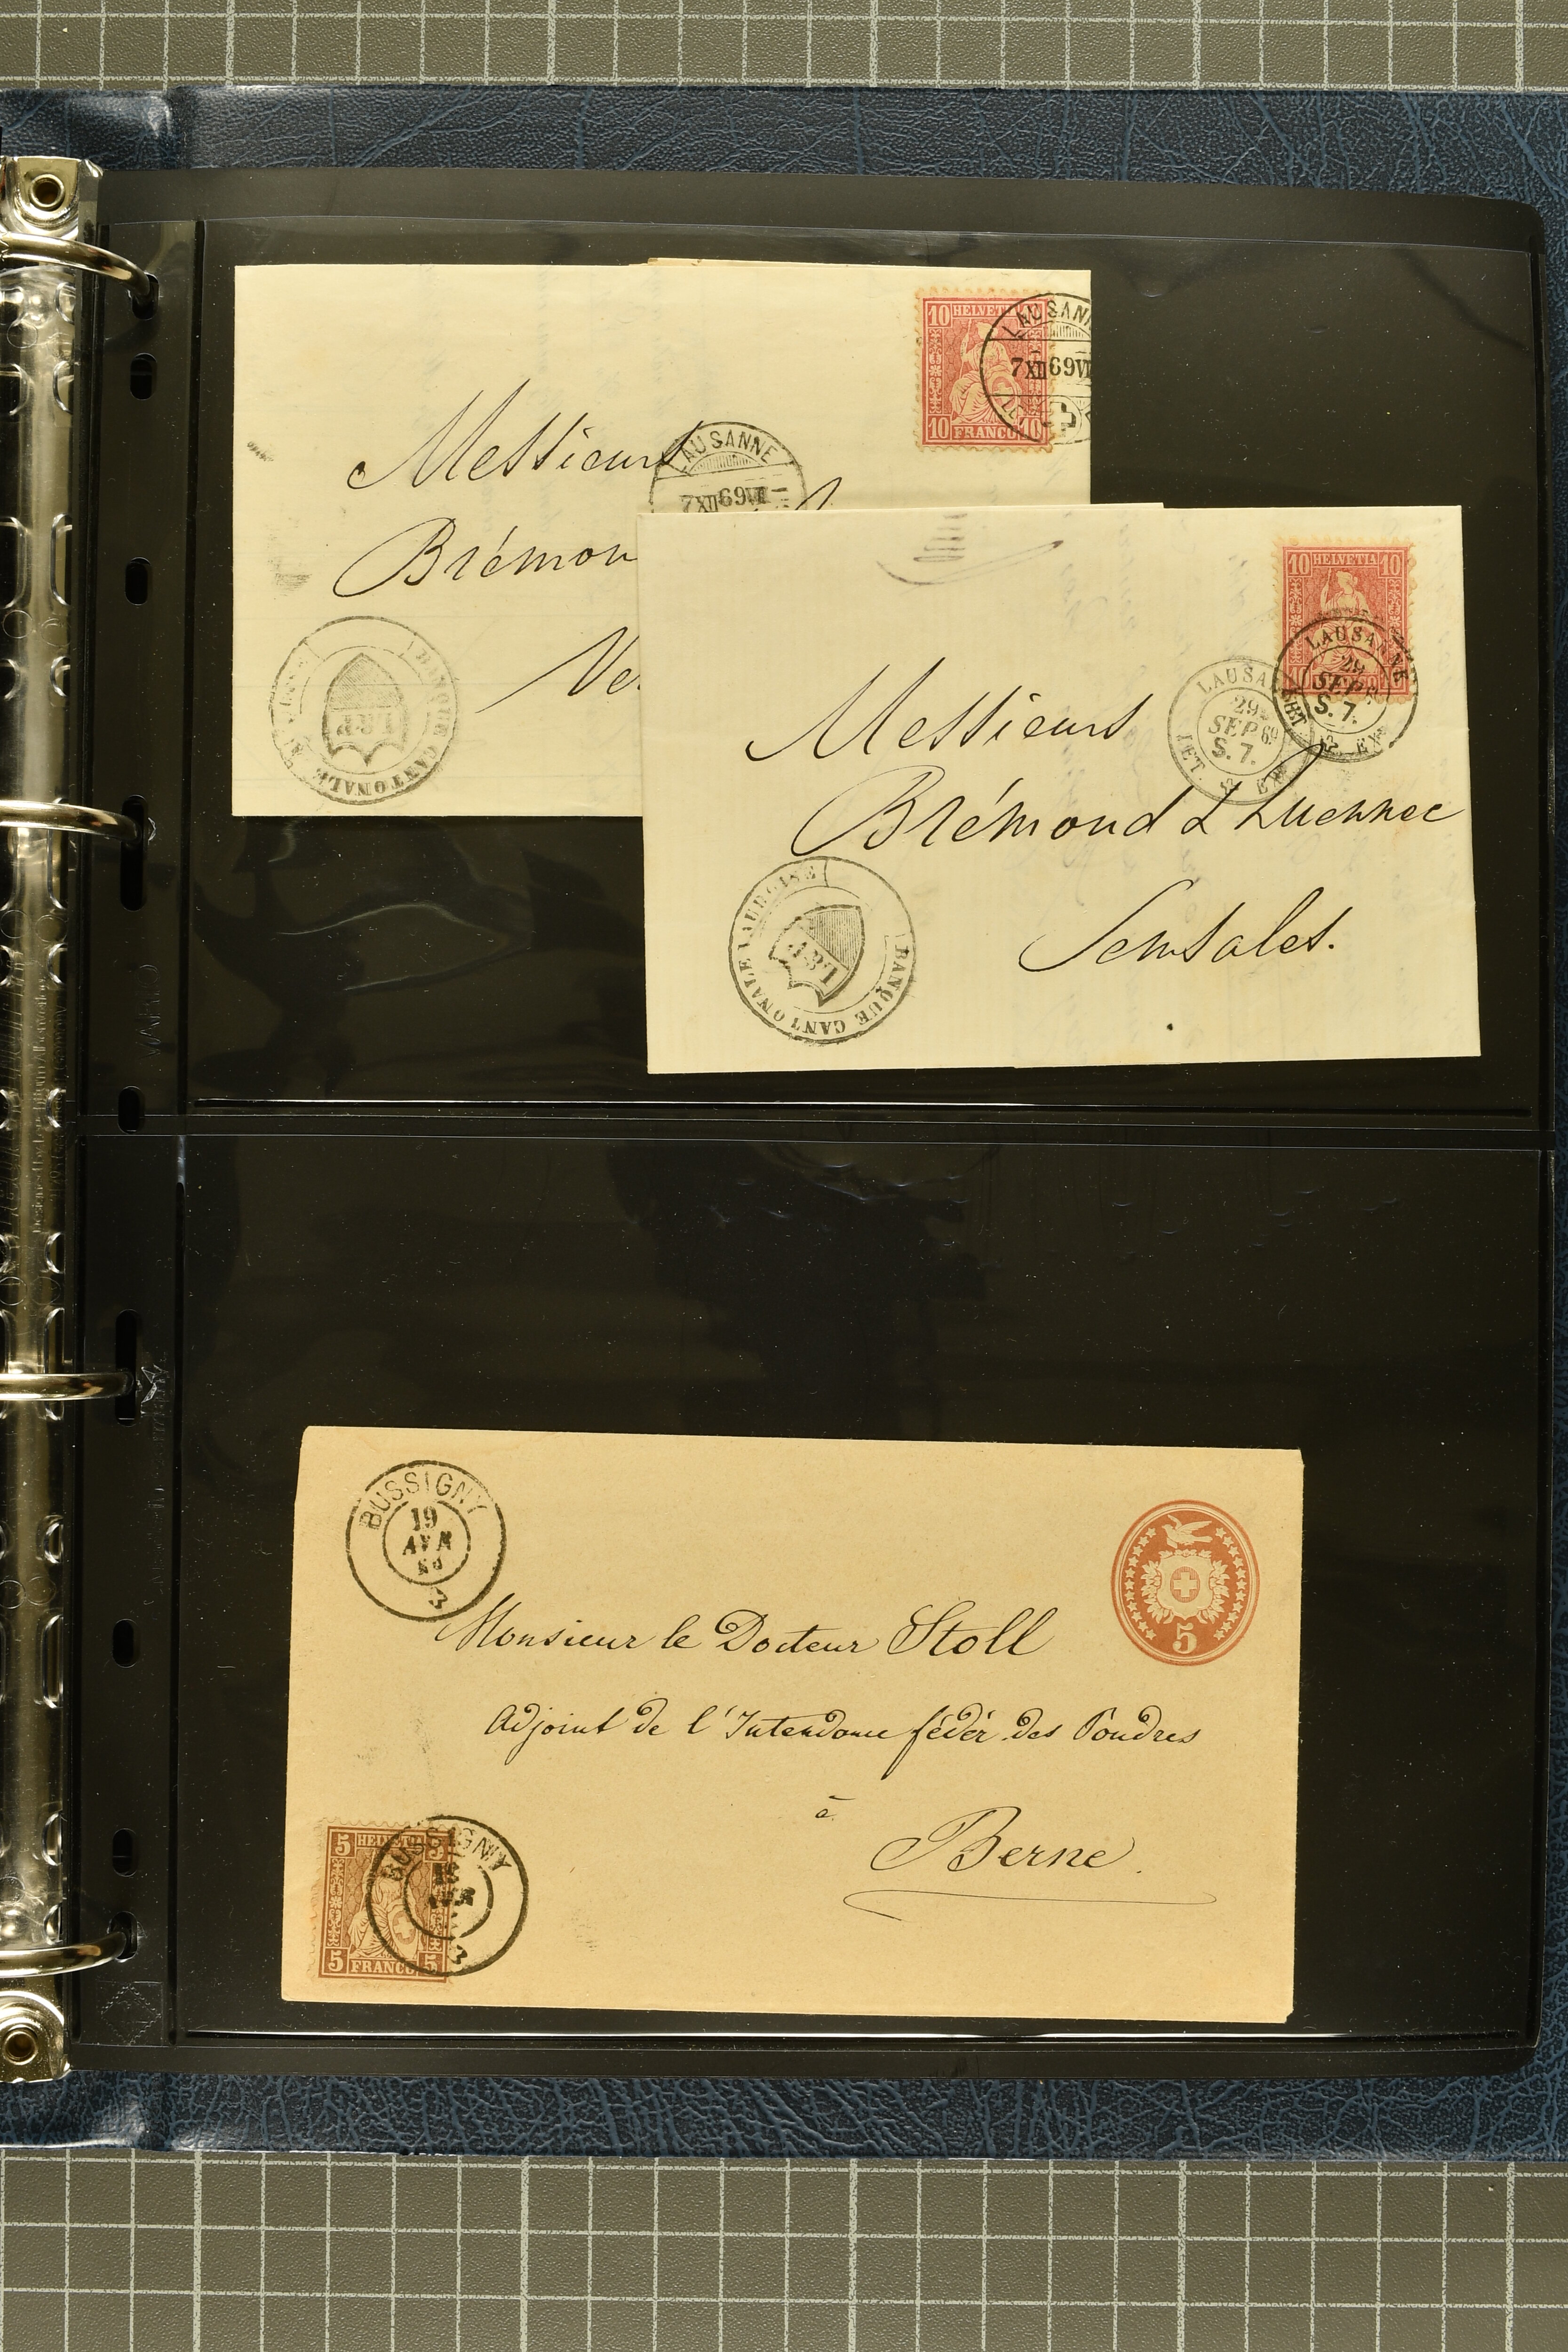 10 HELVETIA
10 FRANCO 10
LAUSANN
7 XII 69 VI
Messieurs
LAUSANNE
7 XII 69 VII
Brémon
BANQUE CANTONALE
10 HELVETIA 10
LAUSANNE
29
SEP 69
S. 7.
LAUSA
29
SEP 69
S. 7.
LET. & EXP
Messieurs
Brémond &
Semsales.
BANQUE CANTONALE VAUDOISE
BUSSIGNY
19
AVR
5
Monsieur le Docteur Stoll
Adjoint de l'Intendance fédér. des Poudres
à
Berne.
5 HELVETIA 5
5 FRANCO 5
BUSSIGNY